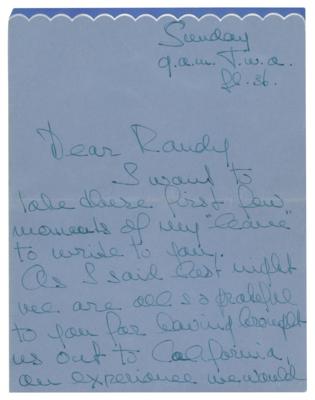 Sunday
9 a.m. T.W.A.
fl. 36.
Dear Randy
I want to
take these first few
moments of my "leave"
to write to you.
As I said last night
we are all so grateful
to you for having brought
us out to California,
an experience we would